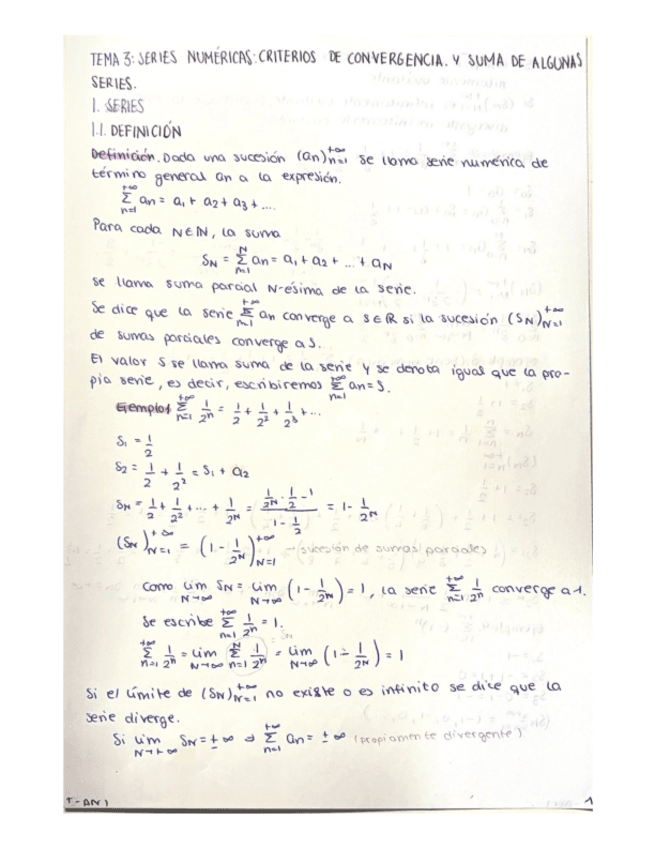 TEMA 3: SERIES NUMÉRICAS: CRITERIOS DE CONVERGENCIA. Y SUMA DE ALGUNAS
SERIES.
1. SERIES
1.1. DEFINICIÓN
Definición. Dada una sucesión (an)_{n=1}^{+∞} se llama serie numérica de
término general an a la expresión.
∑_{n=1}^{+∞} an = a₁ + a₂ + a₃ + ....
Para cada N∈ℕ, la suma
S_N = ∑_{n=1}^{N} an = a₁ + a₂ + ... + a_N
se llama suma parcial N-ésima de la serie.
Se dice que la serie ∑_{n=1}^{+∞} an converge a S∈ℝ si la sucesión (S_N)_{N=1}^{+∞}
de sumas parciales converge a S.
El valor S se llama suma de la serie y se denota igual que la pro-
pia serie, es decir, escribiremos ∑_{n=1}^{+∞} an = S.
Ejemplo1 ∑_{n=1}^{+∞} 1/2ⁿ = 1/2 + 1/2² + 1/2³ + ...
S₁ = 1/2
S₂ = 1/2 + 1/2² = S₁ + a₂
S_N = 1/2 + 1/2² + ... + 1/2^N = (1/2^N · 1/2 - 1)/(1 - 1/2) = 1 - 1/2^N
(S_N)_{N=1}^{+∞} = (1 - 1/2^N)_{N=1}^{+∞} → (sucesión de sumas parciales)
Como lim_{N→∞} S_N = lim_{N→∞} (1 - 1/2^N) = 1, la serie ∑_{n=1}^{+∞} 1/2ⁿ converge a 1.
Se escribe ∑_{n=1}^{+∞} 1/2ⁿ = 1.
= S_N
∑_{n=1}^{+∞} 1/2ⁿ = lim_{N→∞} ∑_{n=1}^{N} 1/2ⁿ = lim_{N→∞} (1 - 1/2^N) = 1
Si el límite de (S_N)_{N=1}^{+∞} no existe o es infinito se dice que la
serie diverge.
Si lim_{N→+∞} S_N = ±∞ ⇒ ∑_{n=1}^{+∞} an = ±∞ (propiamente divergente)
T-AN1
1